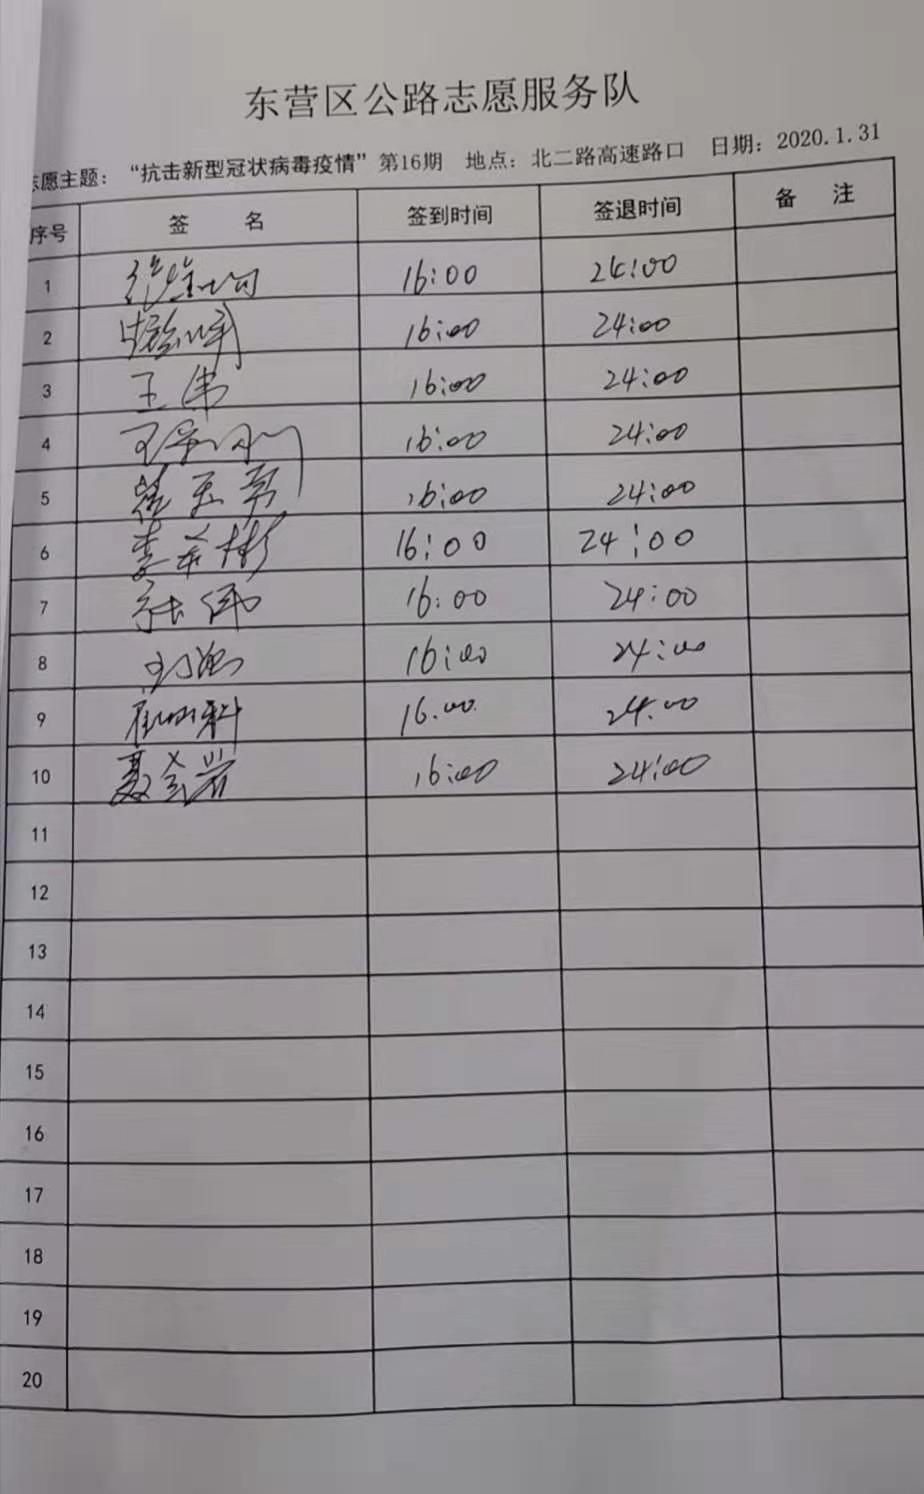 东营区公路志愿服务队
志愿主题：“抗击新型冠状病毒疫情”第16期 地点：北二路高速路口 日期：2020.1.31
序号 签 名 签到时间 签退时间 备 注
1 16:00 24:00
2 16:00 24:00
3 王伟 16:00 24:00
4 16:00 24:00
5 16:00 24:00
6 16:00 24:00
7 张伟 16:00 24:00
8 16:00 24:00
9 16.00 24.00
10 16:00 24:00
11
12
13
14
15
16
17
18
19
20